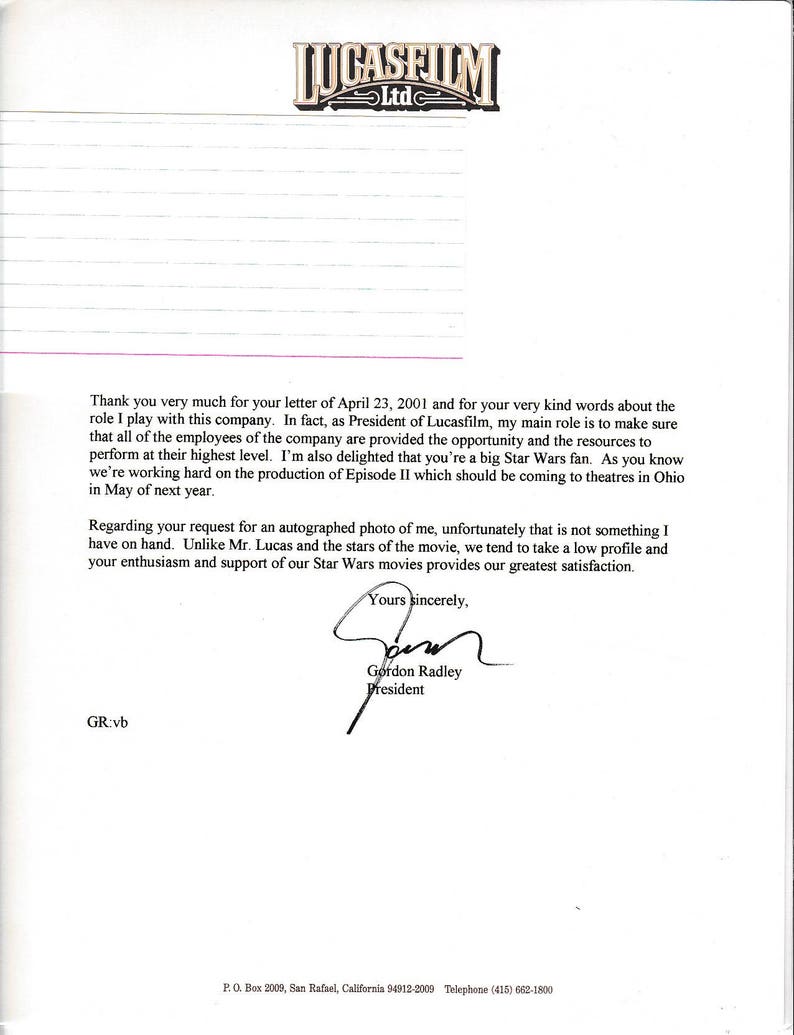 LUCASFILM
Ltd
Thank you very much for your letter of April 23, 2001 and for your very kind words about the
role I play with this company.  In fact, as President of Lucasfilm, my main role is to make sure
that all of the employees of the company are provided the opportunity and the resources to
perform at their highest level.  I'm also delighted that you're a big Star Wars fan.  As you know
we're working hard on the production of Episode II which should be coming to theatres in Ohio
in May of next year.
Regarding your request for an autographed photo of me, unfortunately that is not something I
have on hand.  Unlike Mr. Lucas and the stars of the movie, we tend to take a low profile and
your enthusiasm and support of our Star Wars movies provides our greatest satisfaction.
Yours sincerely,
Gordon Radley
President
GR:vb
P. O. Box 2009, San Rafael, California 94912-2009   Telephone (415) 662-1800